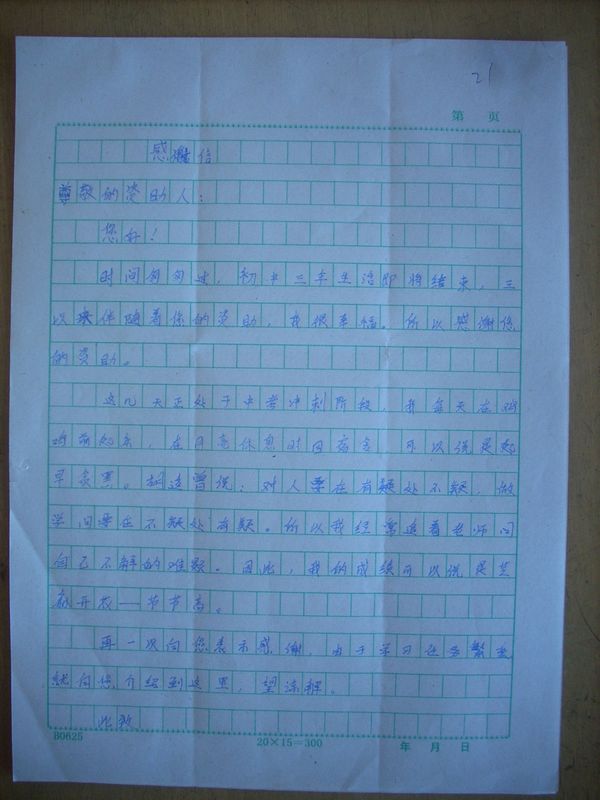 21
第 页
感谢信
尊敬的资助人：
您好！
时间匆匆过，初中三年生活即将结束，三
以来伴随着您的资助，我很幸福。所以感谢您
的资助。
这几天正处于中考冲刺阶段，我每天在鸡
鸣前起来，在月亮休息时回宿舍，可以说是起
早贪黑。胡适曾说：对人要在有疑处不疑，做
学问要在不疑处有疑。所以我经常追着老师问
自己不解的难题。因此，我的成绩可以说是芝
麻开花——节节高。
再一次向您表示感谢，由于学习任务繁重
就向您介绍到这里，望谅解。
此致
B0625
20×15=300
年 月 日